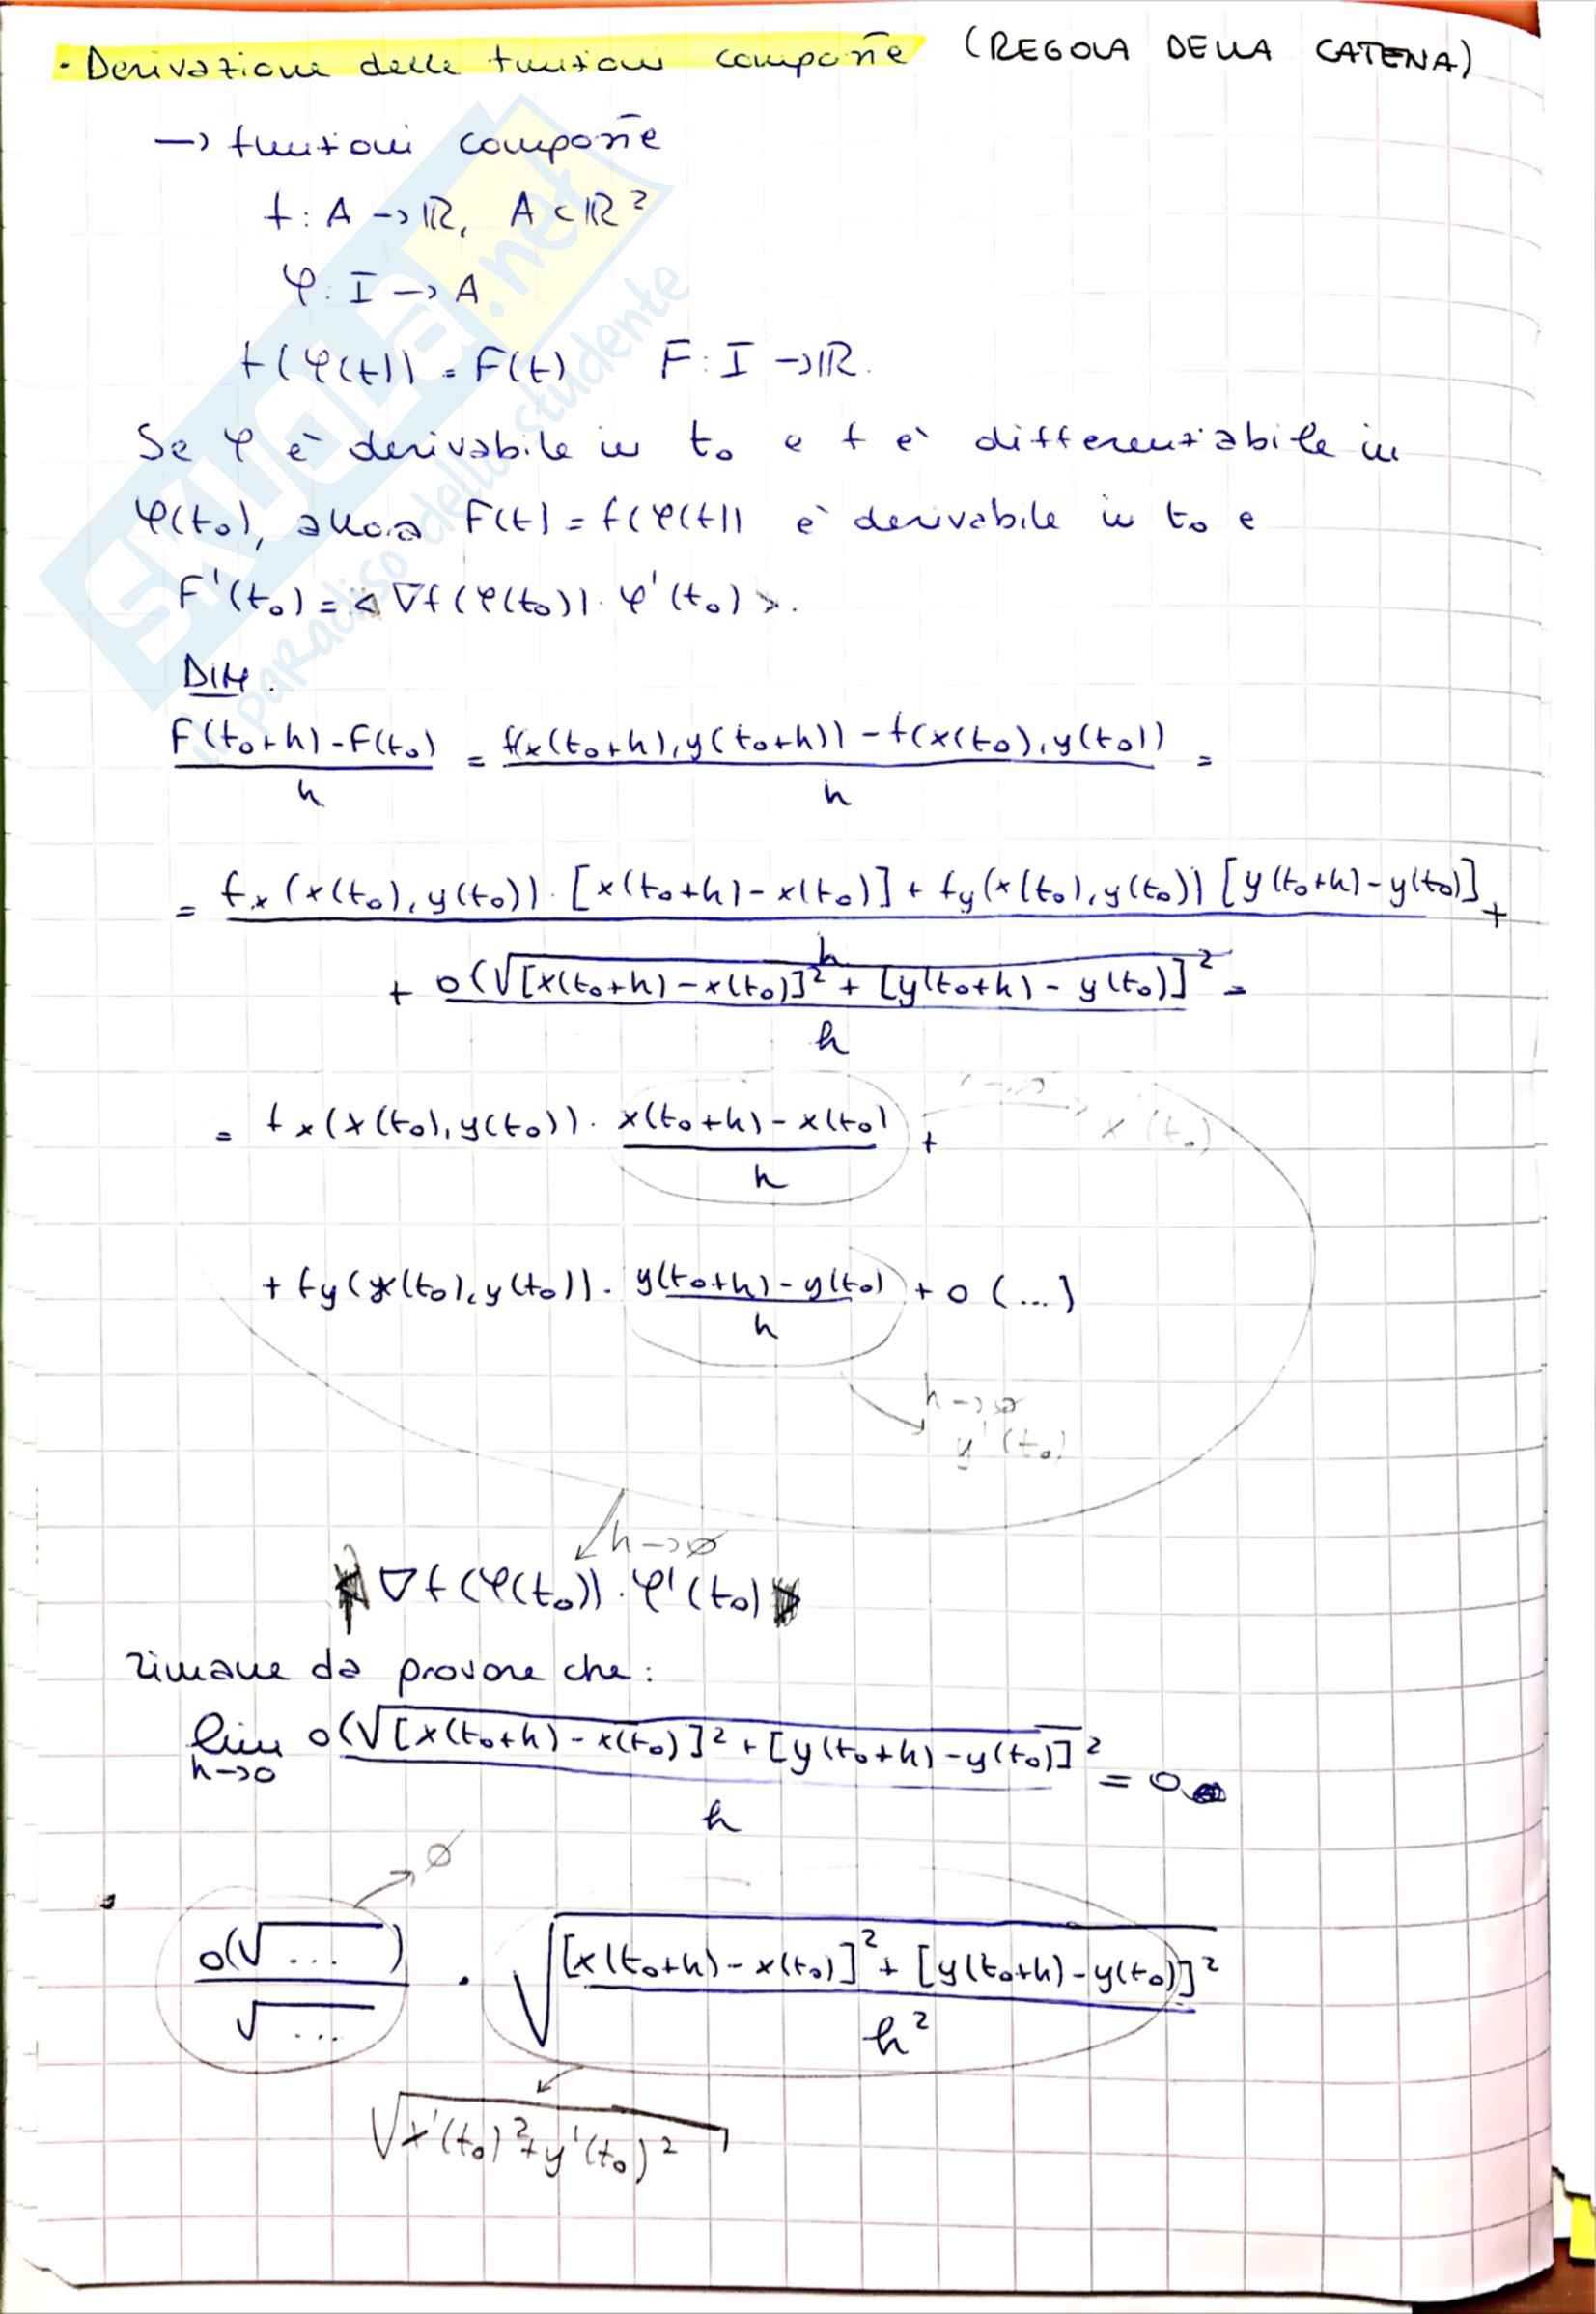 · Derivazione delle funzioni composte (REGOLA DELLA CATENA)
→ funzioni composte
f: A → ℝ, A ⊂ ℝ²
φ: I → A
f(φ(t)) = F(t)   F: I → ℝ.
Se φ è derivabile in t₀ e f è differenziabile in
φ(t₀), allora F(t) = f(φ(t)) è derivabile in t₀ e
F'(t₀) = < ∇f(φ(t₀)) · φ'(t₀) >.
DIM.
(F(t₀+h) - F(t₀))/h = (f(x(t₀+h), y(t₀+h)) - f(x(t₀), y(t₀)))/h =
= (fx(x(t₀), y(t₀)) · [x(t₀+h) - x(t₀)] + fy(x(t₀), y(t₀)) [y(t₀+h) - y(t₀)])/h +
+ o(√[x(t₀+h) - x(t₀)]² + [y(t₀+h) - y(t₀)]²/h =
= fx(x(t₀), y(t₀)) · (x(t₀+h) - x(t₀))/h + → x'(t₀)
+ fy(x(t₀), y(t₀)) · (y(t₀+h) - y(t₀))/h + o(...)
h → 0
y'(t₀)
h → 0
∇f(φ(t₀)) · φ'(t₀)
rimane da provare che:
lim h→0 o(√[x(t₀+h) - x(t₀)]² + [y(t₀+h) - y(t₀)]²/h = 0
→ 0
o(√...)/√... · √([x(t₀+h) - x(t₀)]² + [y(t₀+h) - y(t₀)]²)/h²
√x'(t₀)² + y'(t₀)²
SKUOLA.net
il paradiso dello studente